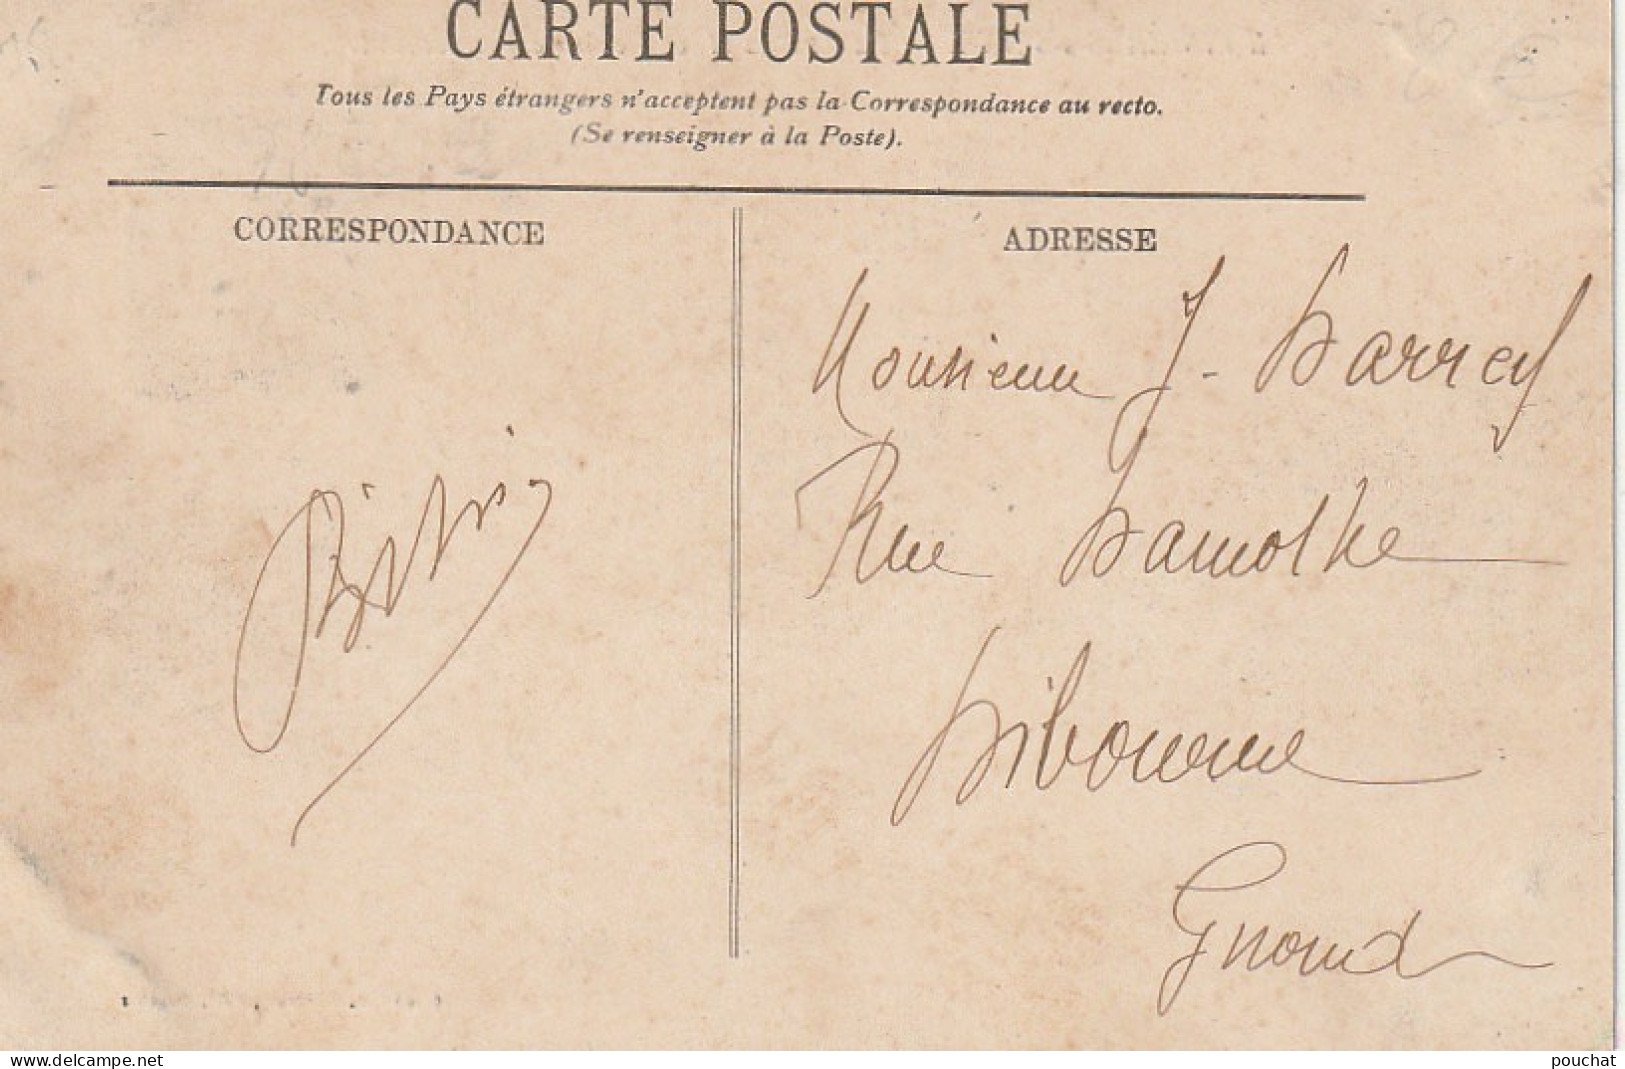 CARTE POSTALE
Tous les Pays étrangers n'acceptent pas la Correspondance au recto.
(Se renseigner à la Poste).
CORRESPONDANCE
ADRESSE
Monsieur J. Larrey
Rue Lamothe
Libourne
Gironde
www.delcampe.net
pouchat